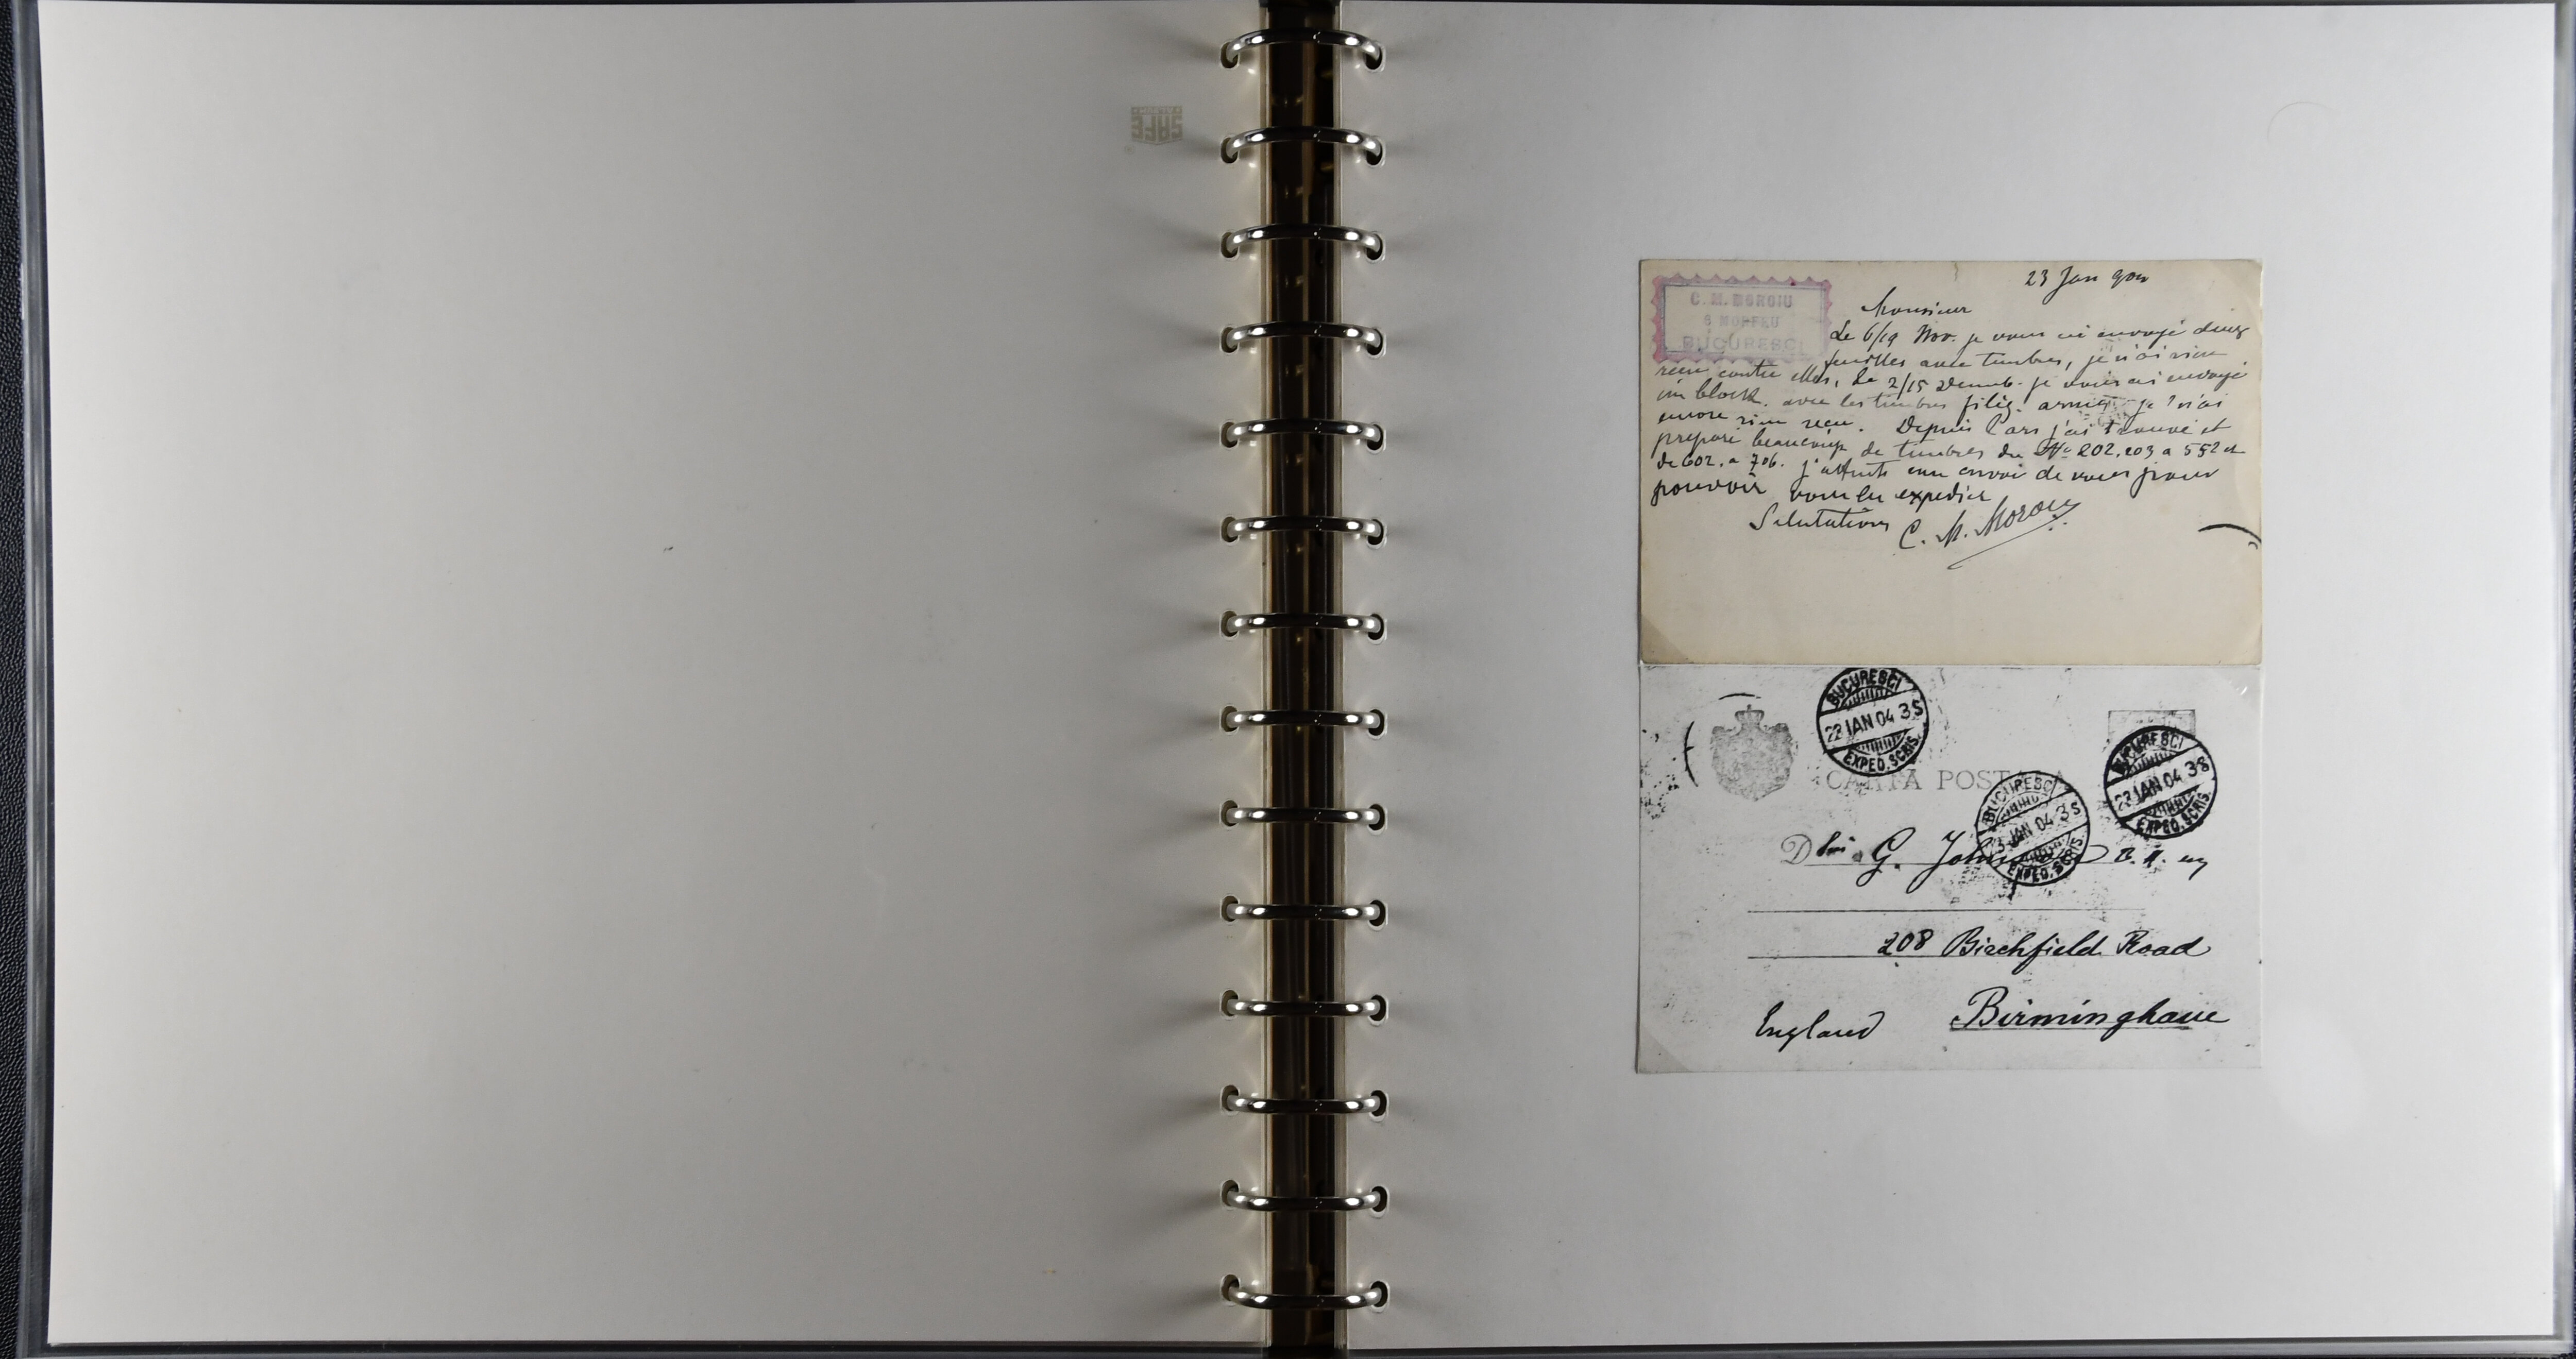 SAFE
ALBUM
C. M. MOROIU
6 MORFEU
BUCURESCI
23 Jan 904
Monsieur
Le 6/19 Nov. je vous ai envoyé deux
feuilles avec timbres, je n'ai rien
recu contre elles, Le 2/15 Decemb. je vous ai envoyé
un block. avec les timbres filig. armes je n'ai
encore rien recu. Depuis l'ors j'ai trouvé et
preparé beaucoup de timbres du No 202, 203 a 552 et
de 602. a 706. j'attends un envoi de vous pour
pouvoir vous en expedier
Salutations C. M. Moroiu
BUCURESCI
22 IAN 04 3S
EXPED. SCRIS.
BUCURESCI
22 IAN 04 38
EXPED. SCRIS.
CARTA POSTALA
BUCURESCI
IAN 04 3S
EXPED. SCRIS.
D G. Johnson B.A.
208 Birchfield Road
England Birmingham